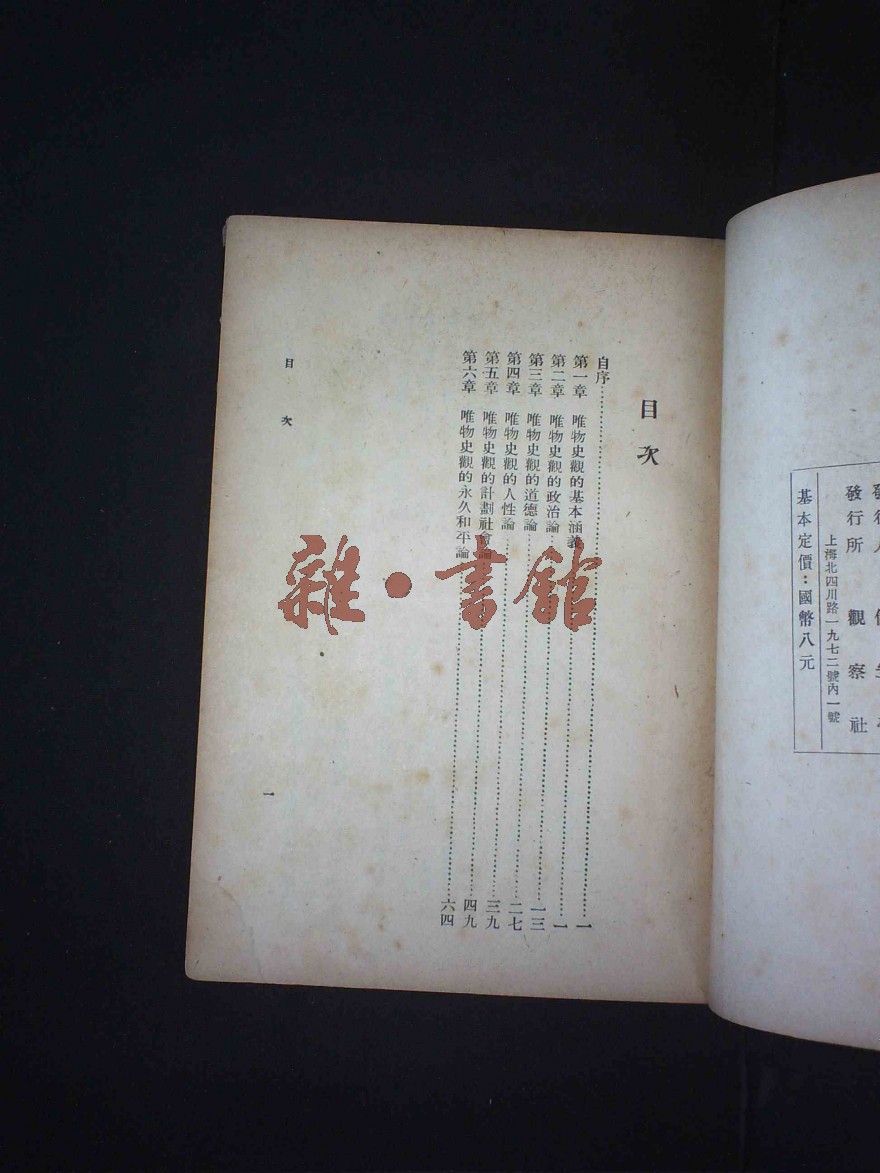 發行人
發行所 觀察社
上海北四川路一九七二號內一號
基本定價：國幣八元
目次
自序……一
第一章 唯物史觀的基本涵義……一
第二章 唯物史觀的政治論……一三
第三章 唯物史觀的道德論……二七
第四章 唯物史觀的人性論……三九
第五章 唯物史觀的計劃社會論……四九
第六章 唯物史觀的永久和平論……六四
目次
一
雜·書館